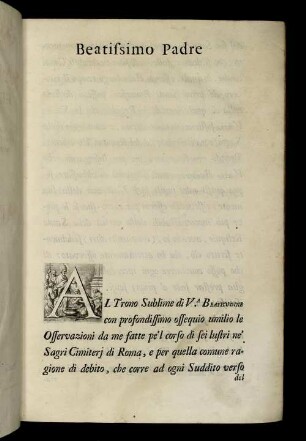 Beatiſsimo Padre
AL Trono Sublime di V.ª BEATITUDINE
con profondiſſimo oſſequio umilio le
Oſſervazioni da me fatte pe'l corſo di ſei luſtri ne'
Sagri Cimiterj di Roma, e per quella comune ra-
gione di debito, che corre ad ogni Suddito verſo
del